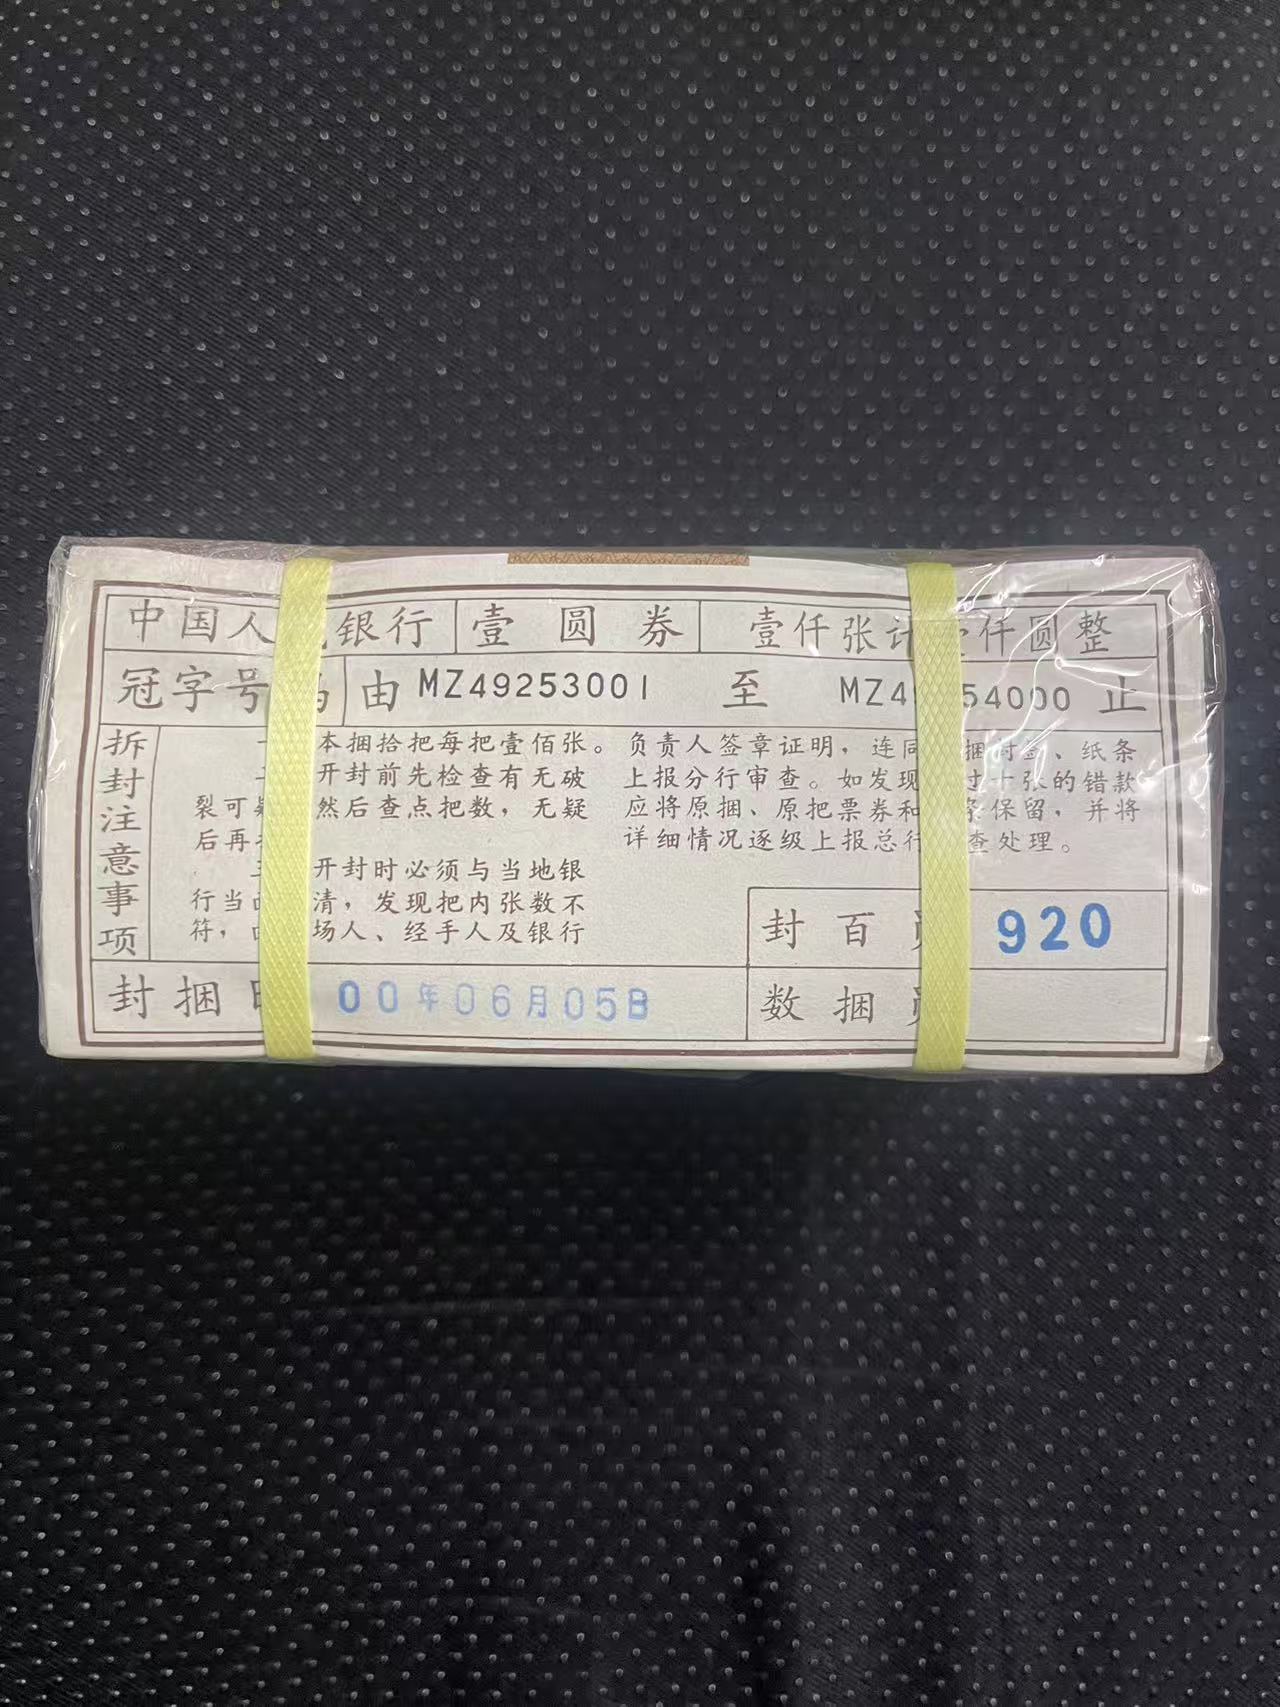 中国人 银行 壹圆券 壹仟张计 仟圆整
冠字号码 由 MZ49253001 至 MZ49 54000 止
拆封注意事项
一 本捆拾把每把壹佰张。
开封前先检查有无破
裂可疑 然后查点把数，无疑
后再
开封时必须与当地银
行当 清，发现把内张数不
符， 场人、经手人及银行
负责人签章证明，连同 捆封签、纸条
上报分行审查。如发现 过十张的错款
应将原捆、原把票券和 条保留，并将
详细情况逐级上报总行 查处理。
封百员 920
封捆日 00年06月05日
数捆员